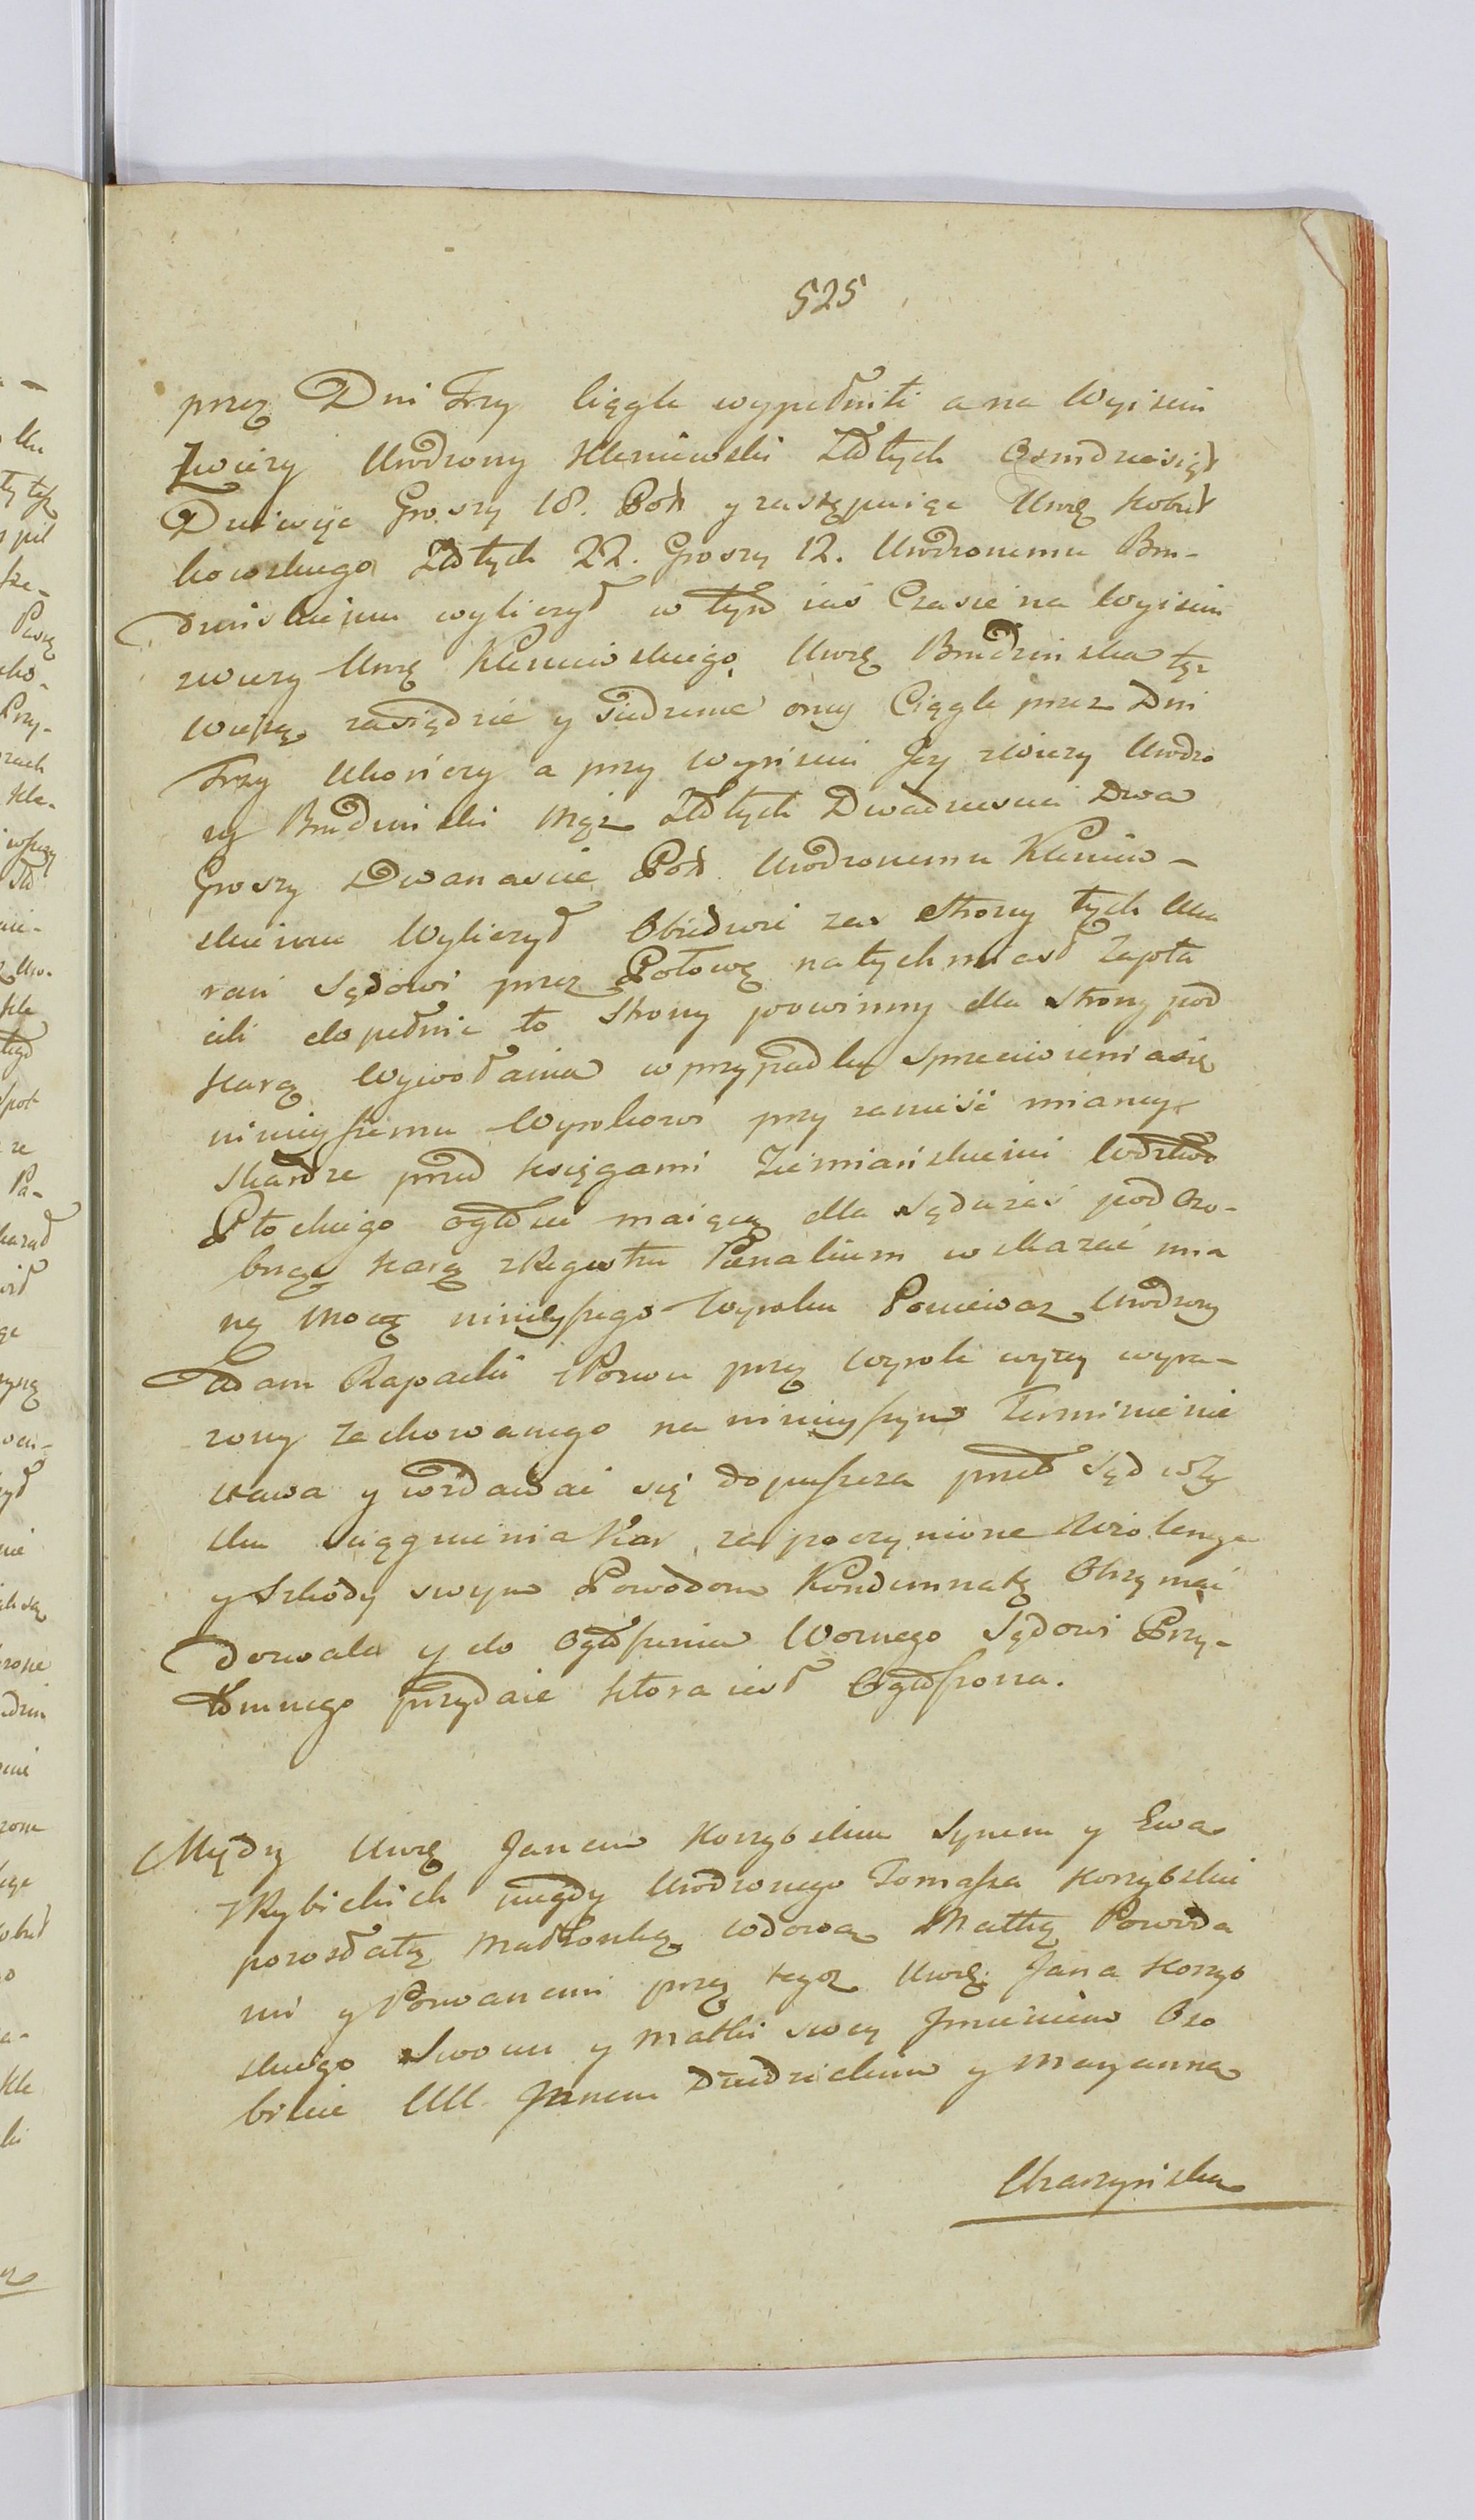 525
przez Dni Trzy ciągle wypełnili a na Wyiściu
Zwieży Urodzony Kleniewski Złłtych Osmdziesiąt
Dziewięć Groszy 18. Pol: y zastępuiąc Urgo Kobył
kowskiego Złłtych 22. Groszy 12. Urodzonemu Bru-
dzińskiemu wyliczył w tym zaś Czasie na Wyiściu
zwieży Urgo Kleniewskiego Urgo Brudzińska tęż
Wieżę zasiędzie y siedzenie oney Ciągle przez Dni
Trzy Ukończy a przy wyiściu Jey zwieży Urodzo
ny Brudzinski Mąż Złłtych Dwadziescia Dwa
Groszy Dwanascie Pol: Urodzonemu Kleniew-
skiemu Wyliczył Obiedwie zaś Strony tych
Sądowi przez Połowę natychmiast Zapła
cili dopełnić to Strony powinny dla Strony pod
Karą Wywołania w przypadku sprzeciwienia się
ninieyszemu Wyrokowi przy zanieść mianey
Skardze przed Księgami Ziemiańskiemi Wdztwa
Płockiego ogłosić maiącą dla Sądu zaś pod Oso-
bną Karą z Regestru Pœnalium wskazać mia
ną Mocą ninieyszego Wyroku Ponieważ Urodzony
Adam Rapacki z Pozwu przez Wyrok wyżey wyra-
żony zachowanego na ninieyszym Terminie nie
stawa y wzdawać się dopuszcza przeto Sąd wzy
dla sciągnienia Kar za poczynione Wiolencye
y Szkody swym Powodom Kondemnatę Otrzymać
dozwala y do Ogłoszenia Woznego Sądowi Przy-
tomnego przydaie która iest Ogłoszona.
Między Urgo Janem Korzybskim Synem y Ewą
z Rybickich niegdy Urodzonego Tomasza Korzybskie
pozostałą Małżonką wdową Matką Powoda
mi y Pozwanemi przez tegoż Urgo Jana Korzyb
skiego Swoim y Matki swey Jmieniem Oso
biście UU. Janem Dziedzickim y Maryanną
Uraszyńską